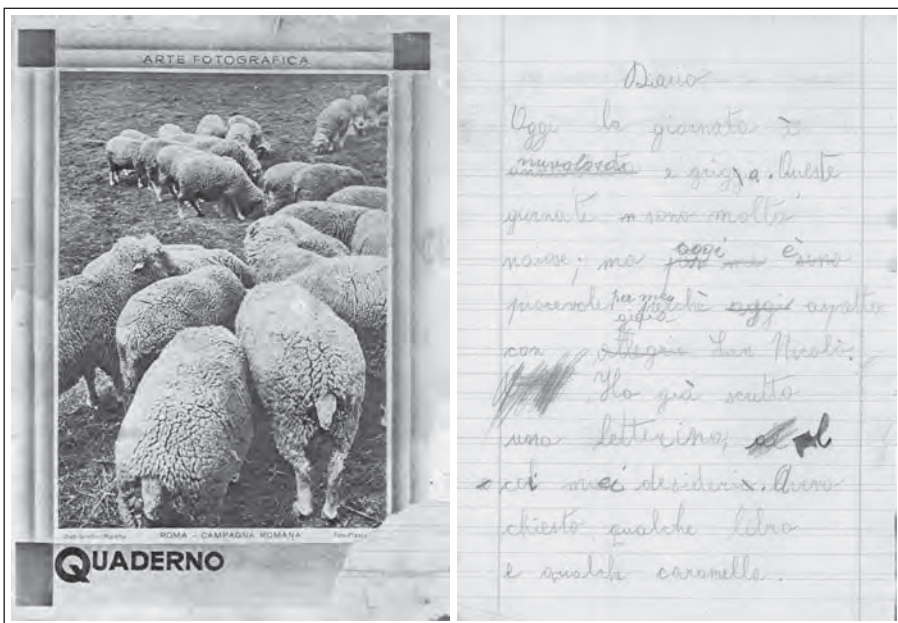 ARTE FOTOGRAFICA
ROMA - CAMPAGNA ROMANA
QUADERNO
Diario
Oggi la giornata è
nuvolosa e grigia. Queste
giornate sono molto
noiose; ma oggi è
piacevole per me perchè aspetto
con gioia San Nicolò.
Ho già scritto
una letterina,
coi miei desideri. Avevo
chiesto qualche libro
e qualche caramella.